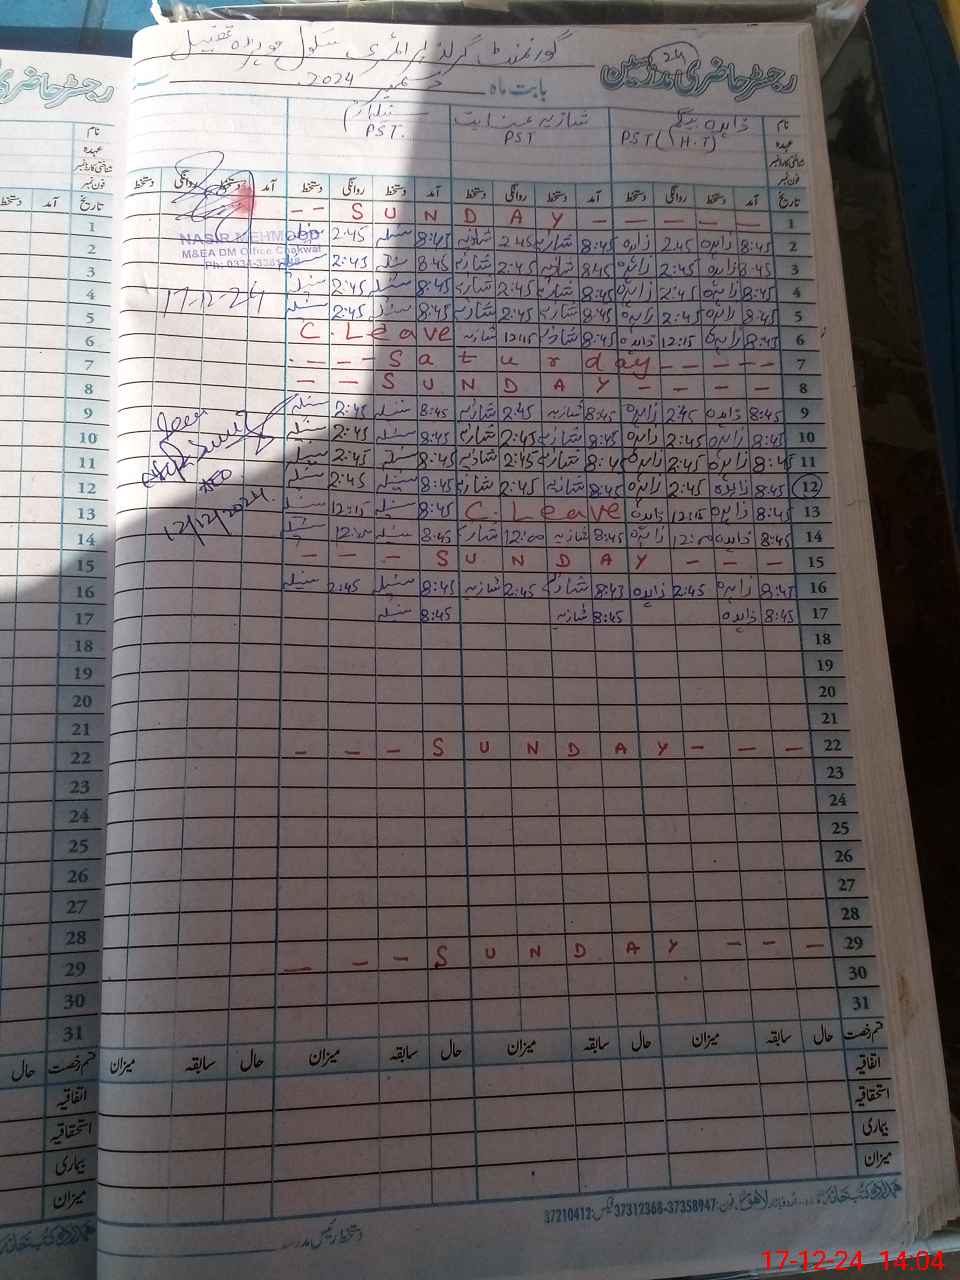 گورنمنٹ گرلز پرائمری سکول
رجسٹر حاضری مدرسین
24
بابت ماہ دسمبر 2024
نام زاہدہ شازیہ عنایت
عہدہ PST (H.T) PST PST.
شناختی کارڈ نمبر
فون نمبر
تاریخ آمد دستخط روانگی دستخط آمد دستخط روانگی دستخط آمد دستخط روانگی دستخط آمد دستخط روانگی دستخط
1 - - S U N D A Y - - - - -
2 8:45 زاہدہ 2:45 زاہدہ 8:45 شازیہ 2:45 شازیہ 8:45 2:45
3 8:45 زاہدہ 2:45 زاہدہ 8:45 شازیہ 2:45 شازیہ 8:45 2:45
4 8:45 زاہدہ 2:45 زاہدہ 8:45 شازیہ 2:45 شازیہ 8:45 2:45
5 8:45 زاہدہ 2:45 زاہدہ 8:45 شازیہ 2:45 شازیہ 8:45 2:45
6 8:45 زاہدہ 12:15 زاہدہ 8:45 شازیہ 12:15 شازیہ C. Leave
7 - - - - S a t u r d a y - - - - -
8 - - S U N D A Y - - - -
9 8:45 زاہدہ 2:45 زاہدہ 8:45 شازیہ 2:45 شازیہ 8:45 2:45
10 8:45 زاہدہ 2:45 زاہدہ 8:45 شازیہ 2:45 شازیہ 8:45 2:45
11 8:45 زاہدہ 2:45 زاہدہ 8:45 شازیہ 2:45 شازیہ 8:45 2:45
12 8:45 زاہدہ 2:45 زاہدہ 8:45 شازیہ 2:45 شازیہ 8:45 2:45
13 8:45 زاہدہ 12:15 زاہدہ C. Leave 8:45 12:15
14 8:45 زاہدہ 12:00 زاہدہ 8:45 شازیہ 12:00 شازیہ 8:45 12:00
15 - - - S U N D A Y - - -
16 8:45 زاہدہ 2:45 زاہدہ 8:45 شازیہ 2:45 شازیہ 8:45 2:45
17 8:45 زاہدہ 8:45 شازیہ 8:45
18
19
20
21
22 - - - S U N D A Y - - -
23
24
25
26
27
28
29 - - - S U N D A Y - - -
30
31
NASIR MEHMOOD
M&EA DM Office Chakwal
17-12-24
Seen
AEO
12/12/2024
قسم رخصت حال سابقہ میزان حال سابقہ میزان حال سابقہ میزان حال سابقہ میزان
اتفاقیہ
استحقاقیہ
بیماری
میزان
دستخط رئیس مدرسہ
ہمدرد کتب خانہ اردو بازار لاہور فون: 37358947-37312368 فیکس: 37210412
رجسٹر حاضری
نام
عہدہ
شناختی کارڈ نمبر
فون نمبر
تاریخ آمد دستخط
1
2
3
4
5
6
7
8
9
10
11
12
13
14
15
16
17
18
19
20
21
22
23
24
25
26
27
28
29
30
31
قسم رخصت حال
اتفاقیہ
استحقاقیہ
بیماری
میزان
ہمدرد کتب خانہ
17-12-24 14:04